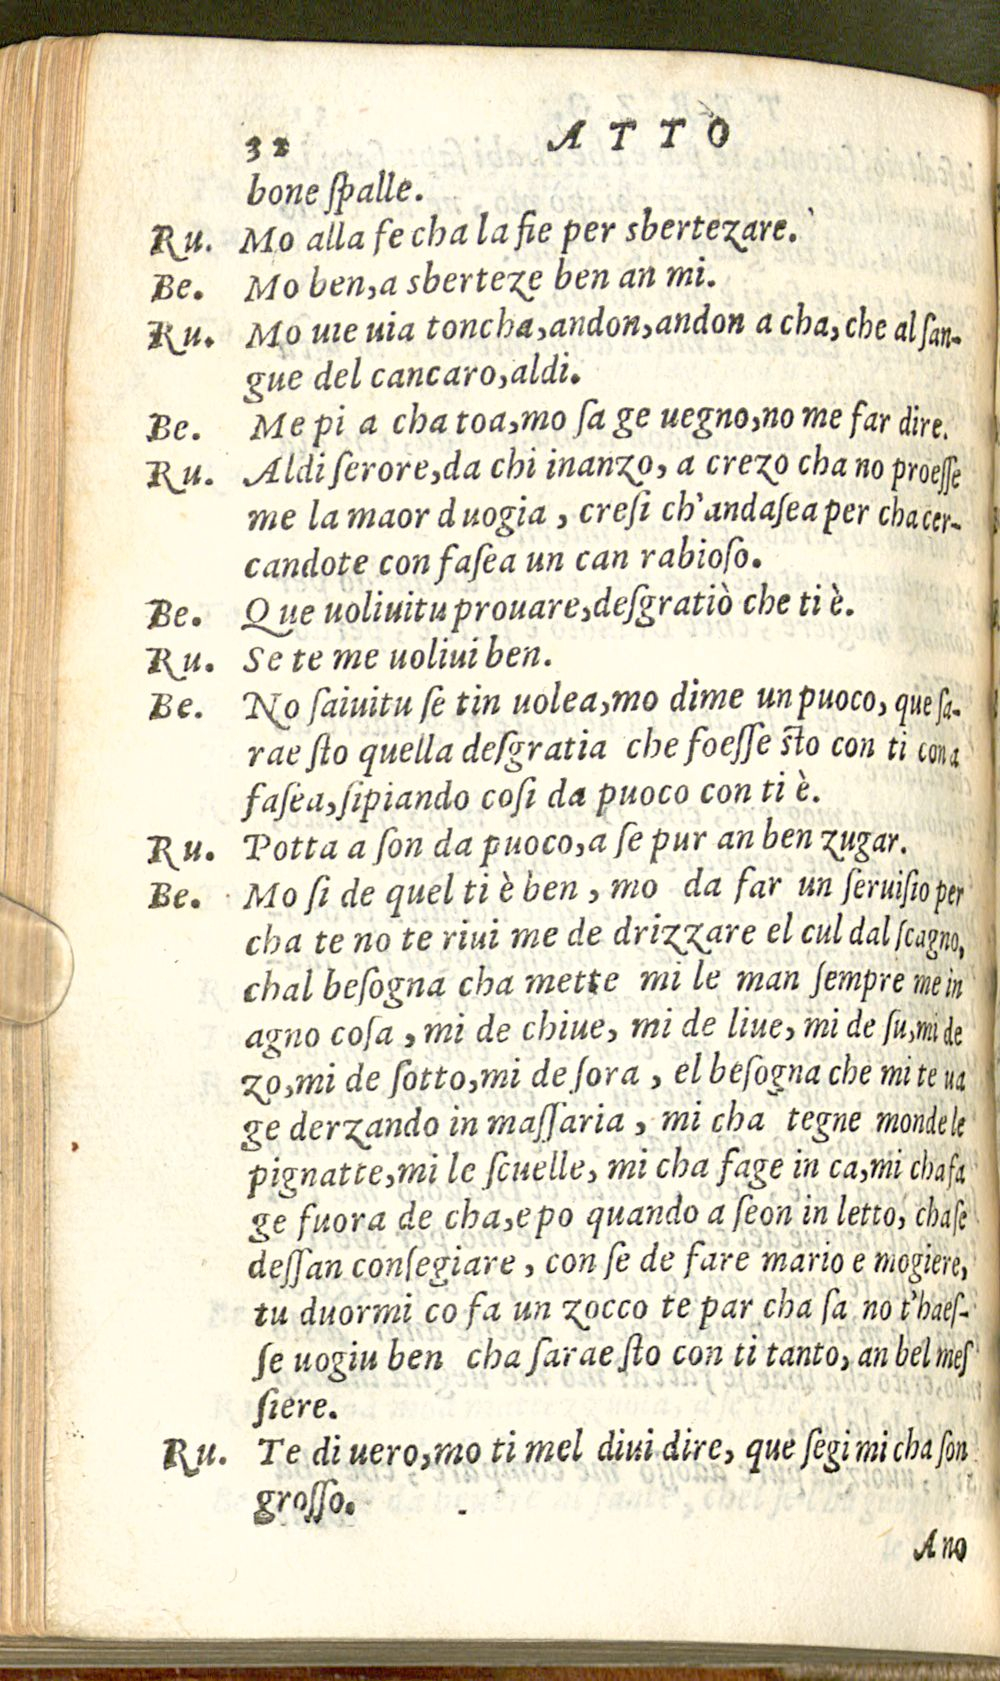 32 ATTO
bone ſpalle.
Ru. Mo alla fe cha la fie per sbertezare.
Be. Mo ben,a sberteze ben an mi.
Ru. Mo uie uia toncha,andon,andon a cha,che al ſan-
gue del cancaro,aldi.
Be. Me pi a cha toa,mo ſa ge uegno,no me far dire.
Ru. Aldi ſerore,da chi inanzo, a crezo cha no proeſſe
me la maor d uogia , creſi ch'andaſea per cha cer-
candote con faſea un can rabioſo.
Be. Que uoliuitu prouare,deſgratiò che ti è.
Ru. Se te me uoliui ben.
Be. No ſaiuitu ſe tin uolea,mo dime un puoco, que ſa-
rae ſto quella deſgratia che foeſſe ſto con ti con a
faſea,ſipiando coſi da puoco con ti è.
Ru. Potta a ſon da puoco,a ſe pur an ben zugar.
Be. Mo ſi de quel ti è ben , mo da far un ſeruiſio per
cha te no te riui me de drizzare el cul dal ſcagno,
chal beſogna cha mette mi le man ſempre me in
agno coſa , mi de chiue, mi de liue, mi de ſu,mi de
zo,mi de ſotto,mi de ſora , el beſogna che mi te ua
ge derzando in maſſaria , mi cha tegne monde le
pignatte,mi le ſcuelle, mi cha fage in ca,mi cha fa
ge fuora de cha,e po quando a ſeon in letto, cha ſe
deſſan conſegiare , con ſe de fare mario e mogiere,
tu duormi co fa un zocco te par cha ſa no t'haeſ-
ſe uogiu ben cha ſarae ſto con ti tanto, an bel meſ
ſiere.
Ru. Te di uero,mo ti mel diui dire, que ſegi mi cha ſon
groſſo.
Ano